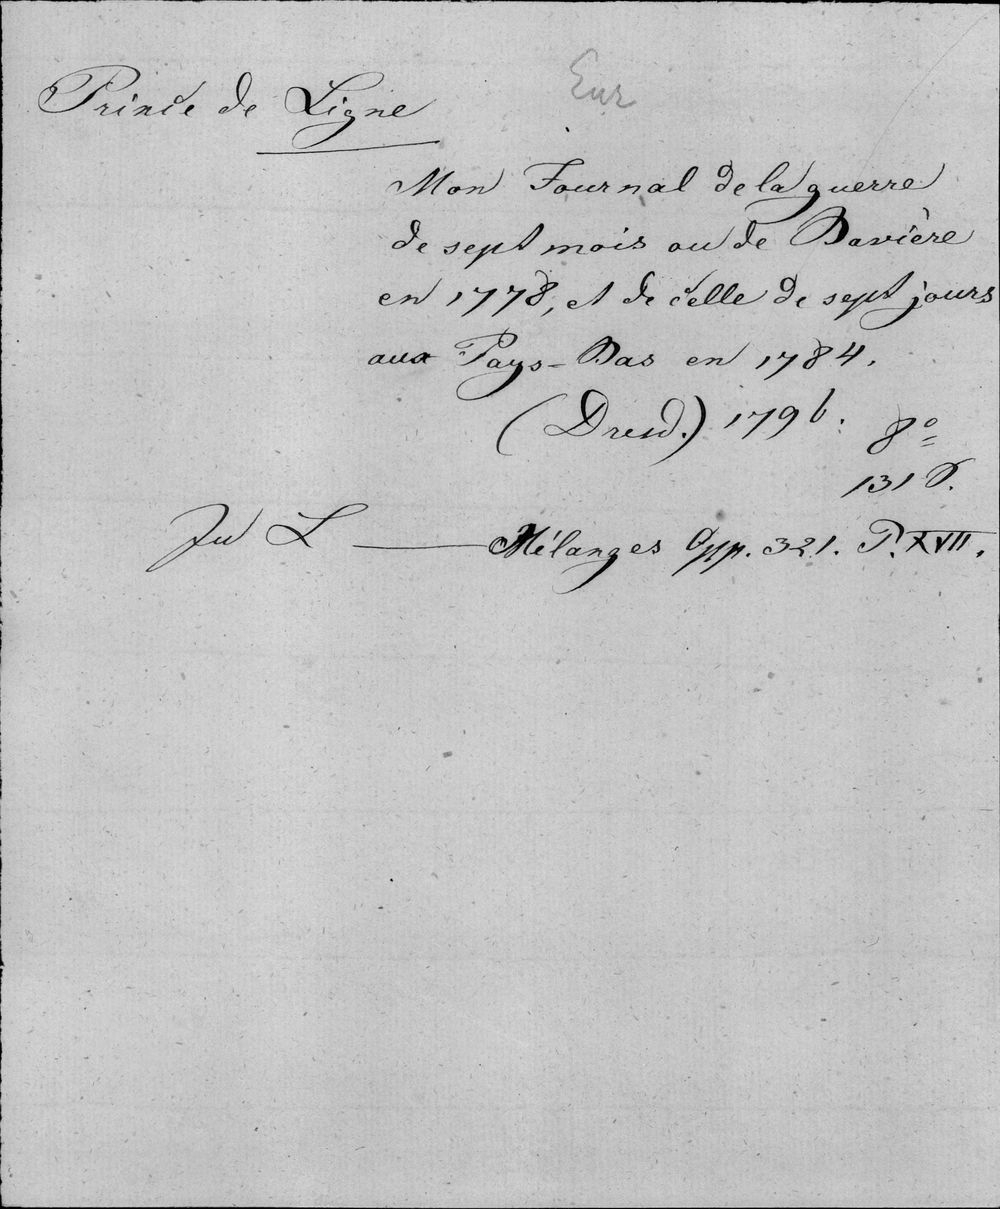 Eur
Prince de Ligne
Mon Journal de la guerre
de sept mois ou de Bavière
en 1778, et de celle de sept jours
aux Pays-Bas en 1784.
(Dresd.) 1796.
8º
131 S.
In L — Mélanges Opp. 321. T. XVII.